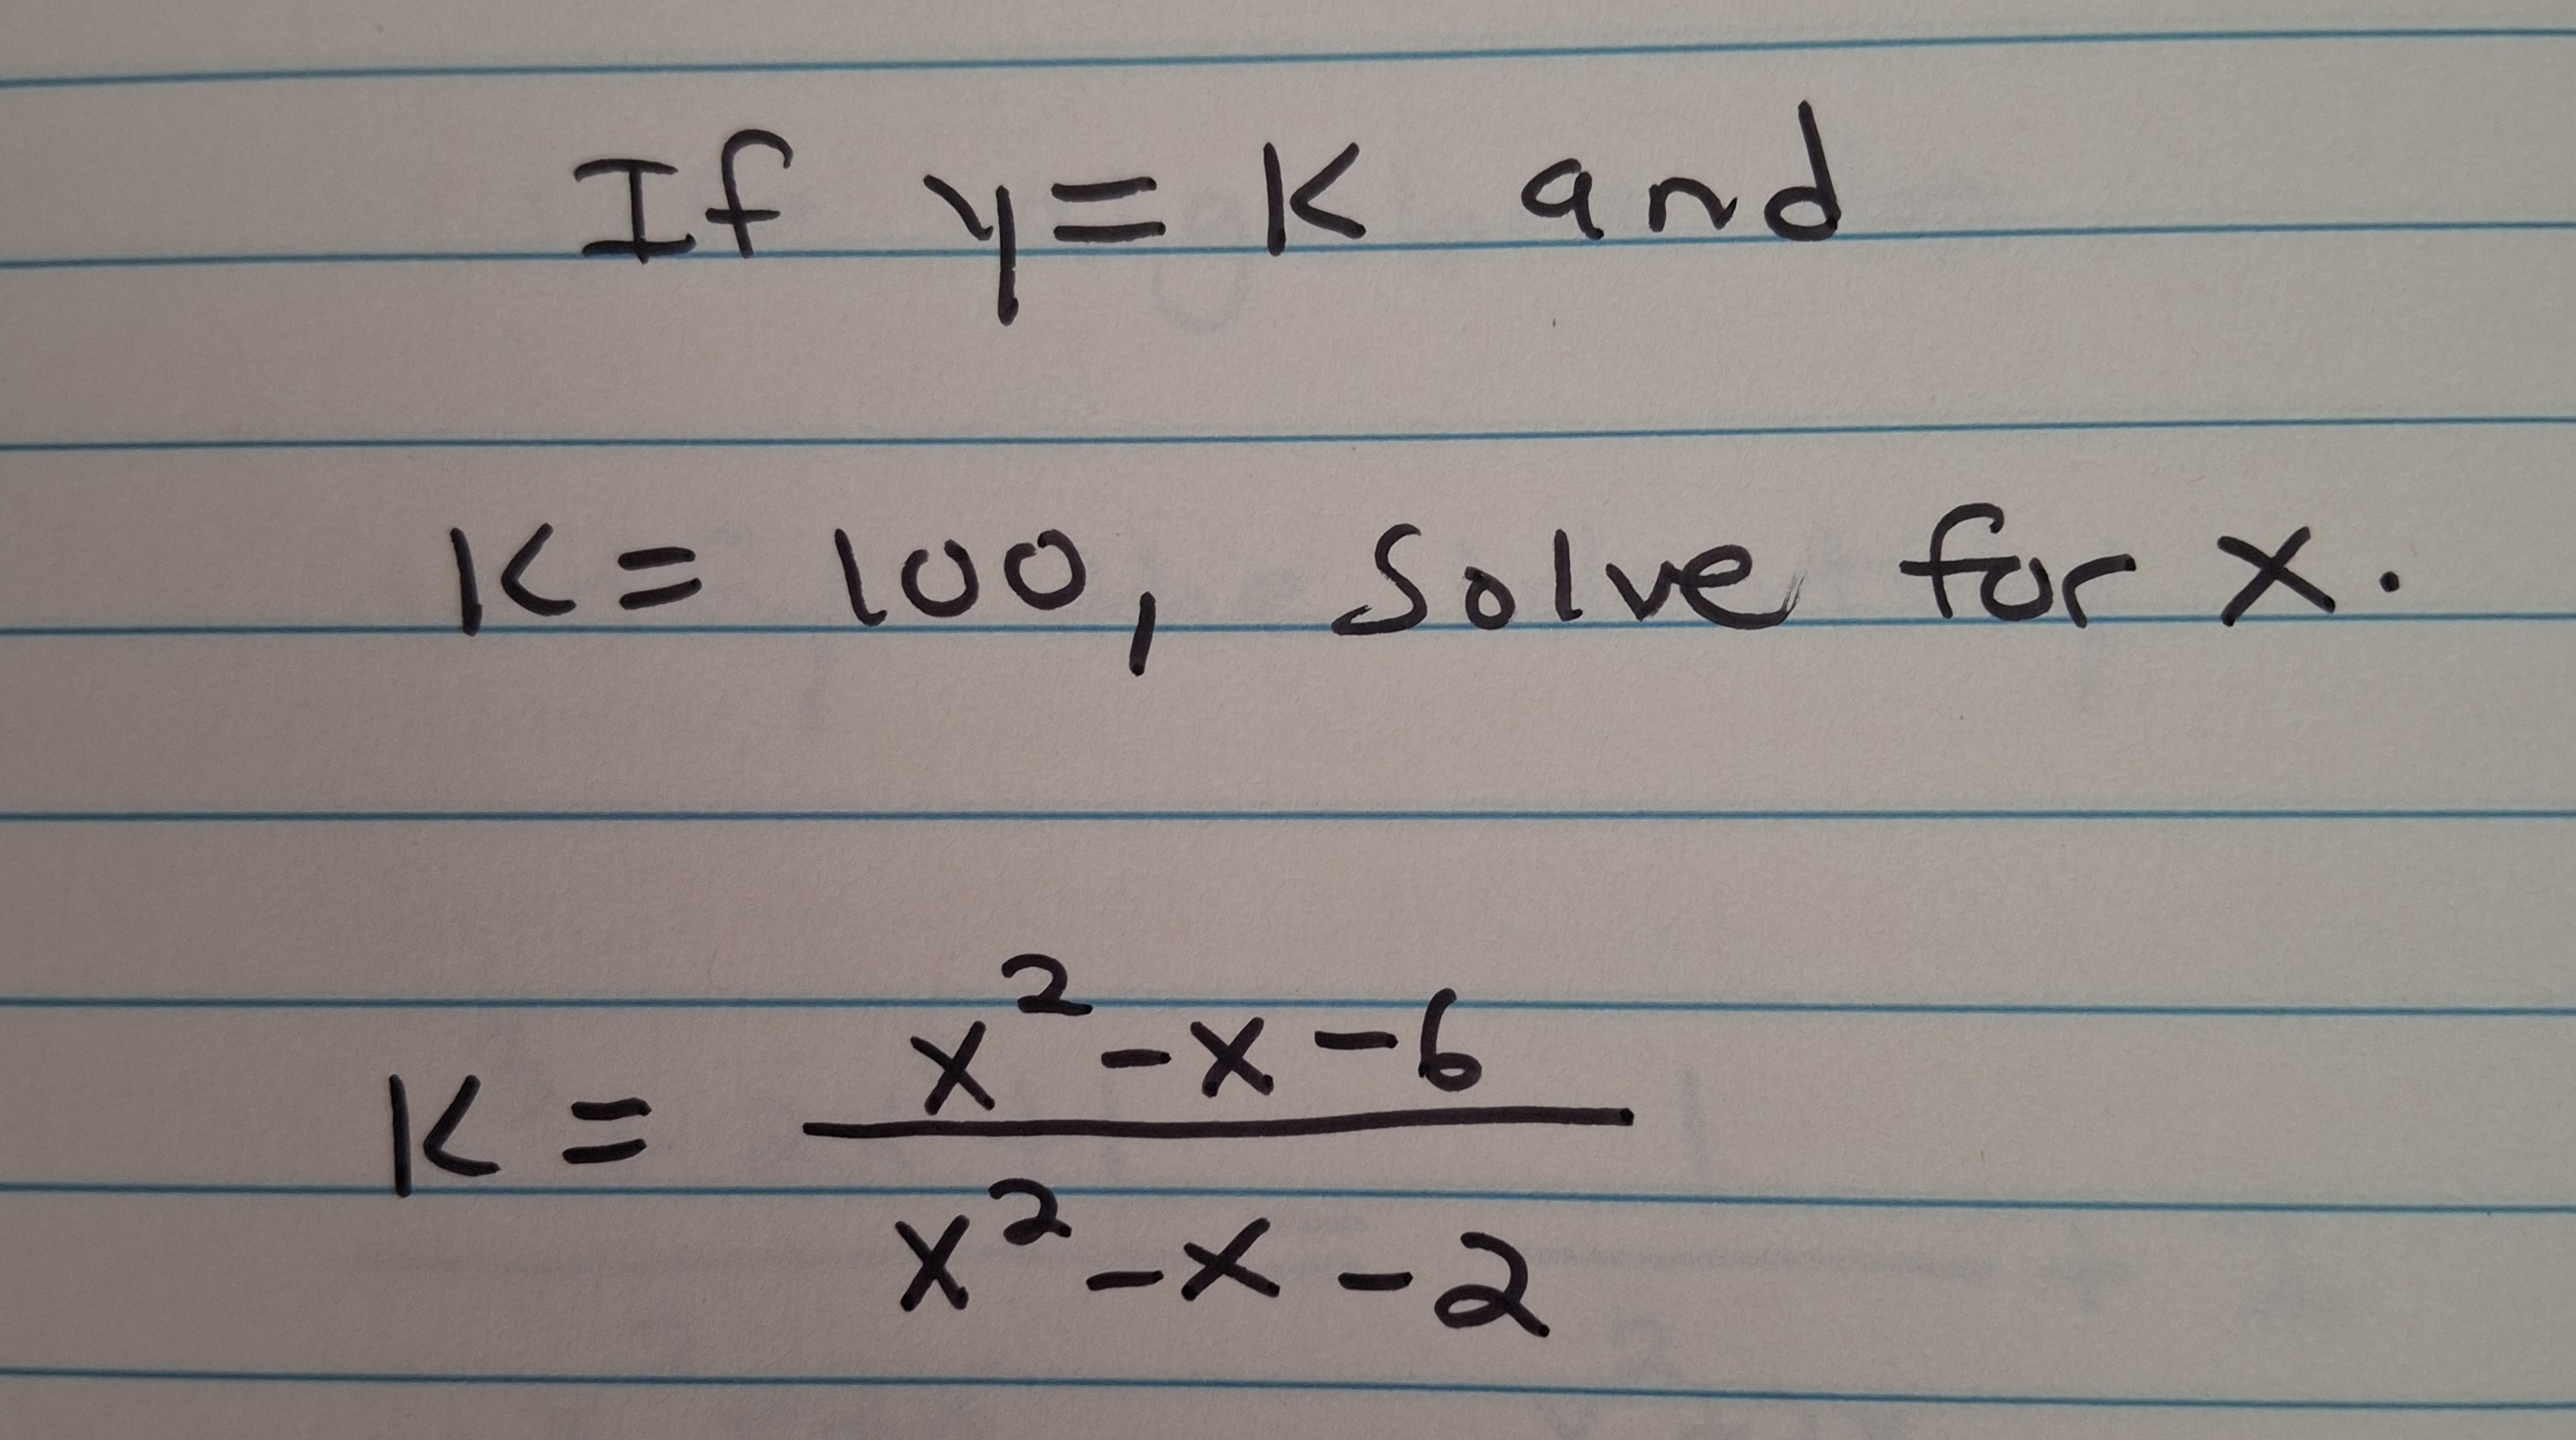 If y = K and
K = 100, Solve for x.
K = \frac{x^2 - x - 6}{x^2 - x - 2}